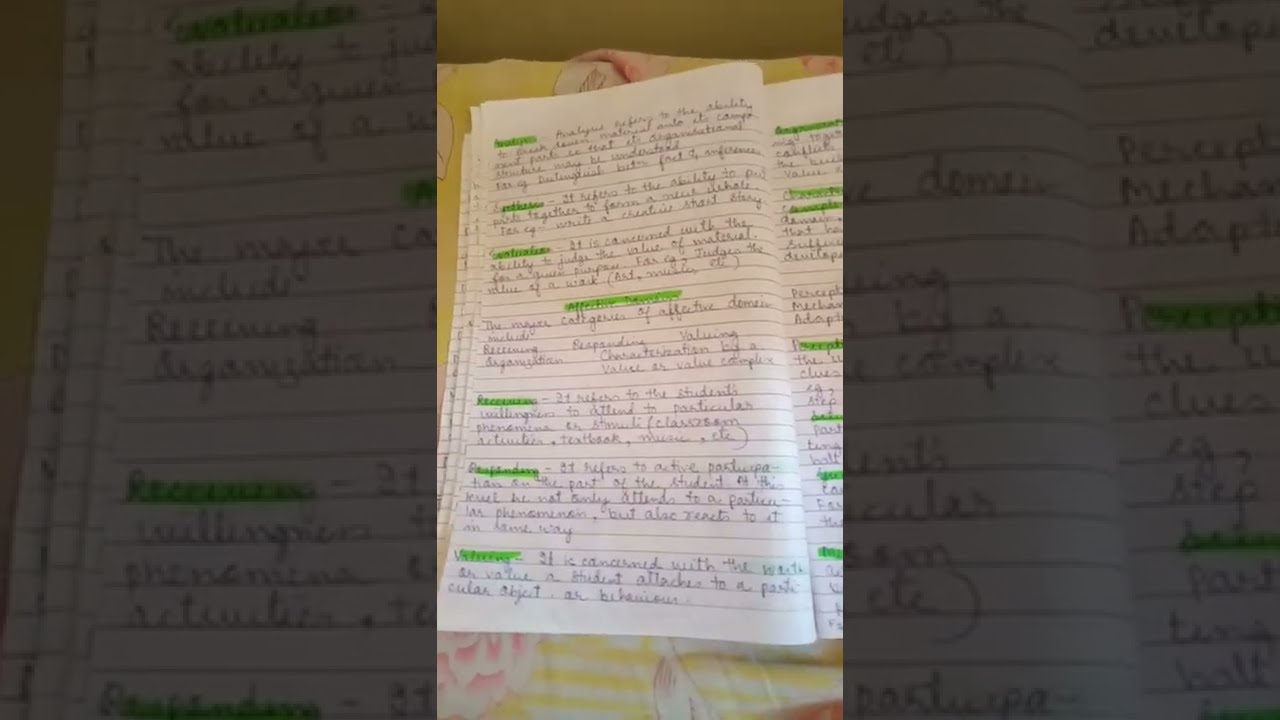 Analysis - Analysis refers to the ability
to break down material into its compo
nent parts so that its organisational
structure may be understood
For eg Distinguish betn fact & inference
Synthesis - It refers to the ability to put
parts together to form a new whole
For eg - write a creative short story
Evaluation - It is concerned with the
ability to judge the value of material
for a given purpose. For eg, Judges the
value of a work (Art, music, etc)
Affective Domain
The major categories of affective domain
include
Receiving Responding Valuing
Organization Characterization by a
Value or value complex
Receiving - It refers to the student's
willingness to attend to particular
phenomena or stimuli (classroom
activities, textbook, music, etc)
Responding - It refers to active participa-
tion on the part of the student At this
level he not only attends to a particu-
lar phenomenon, but also reacts to it
in some way
Valuing - It is concerned with the worth
or value a student attaches to a parti-
cular object or behaviour.
may
conflicts
the
Value
Complex
domain
that ha
suffic
develope
Percept
Mechan
Adapt
Percept
the
clues
eg,
step
part
ting
For
the